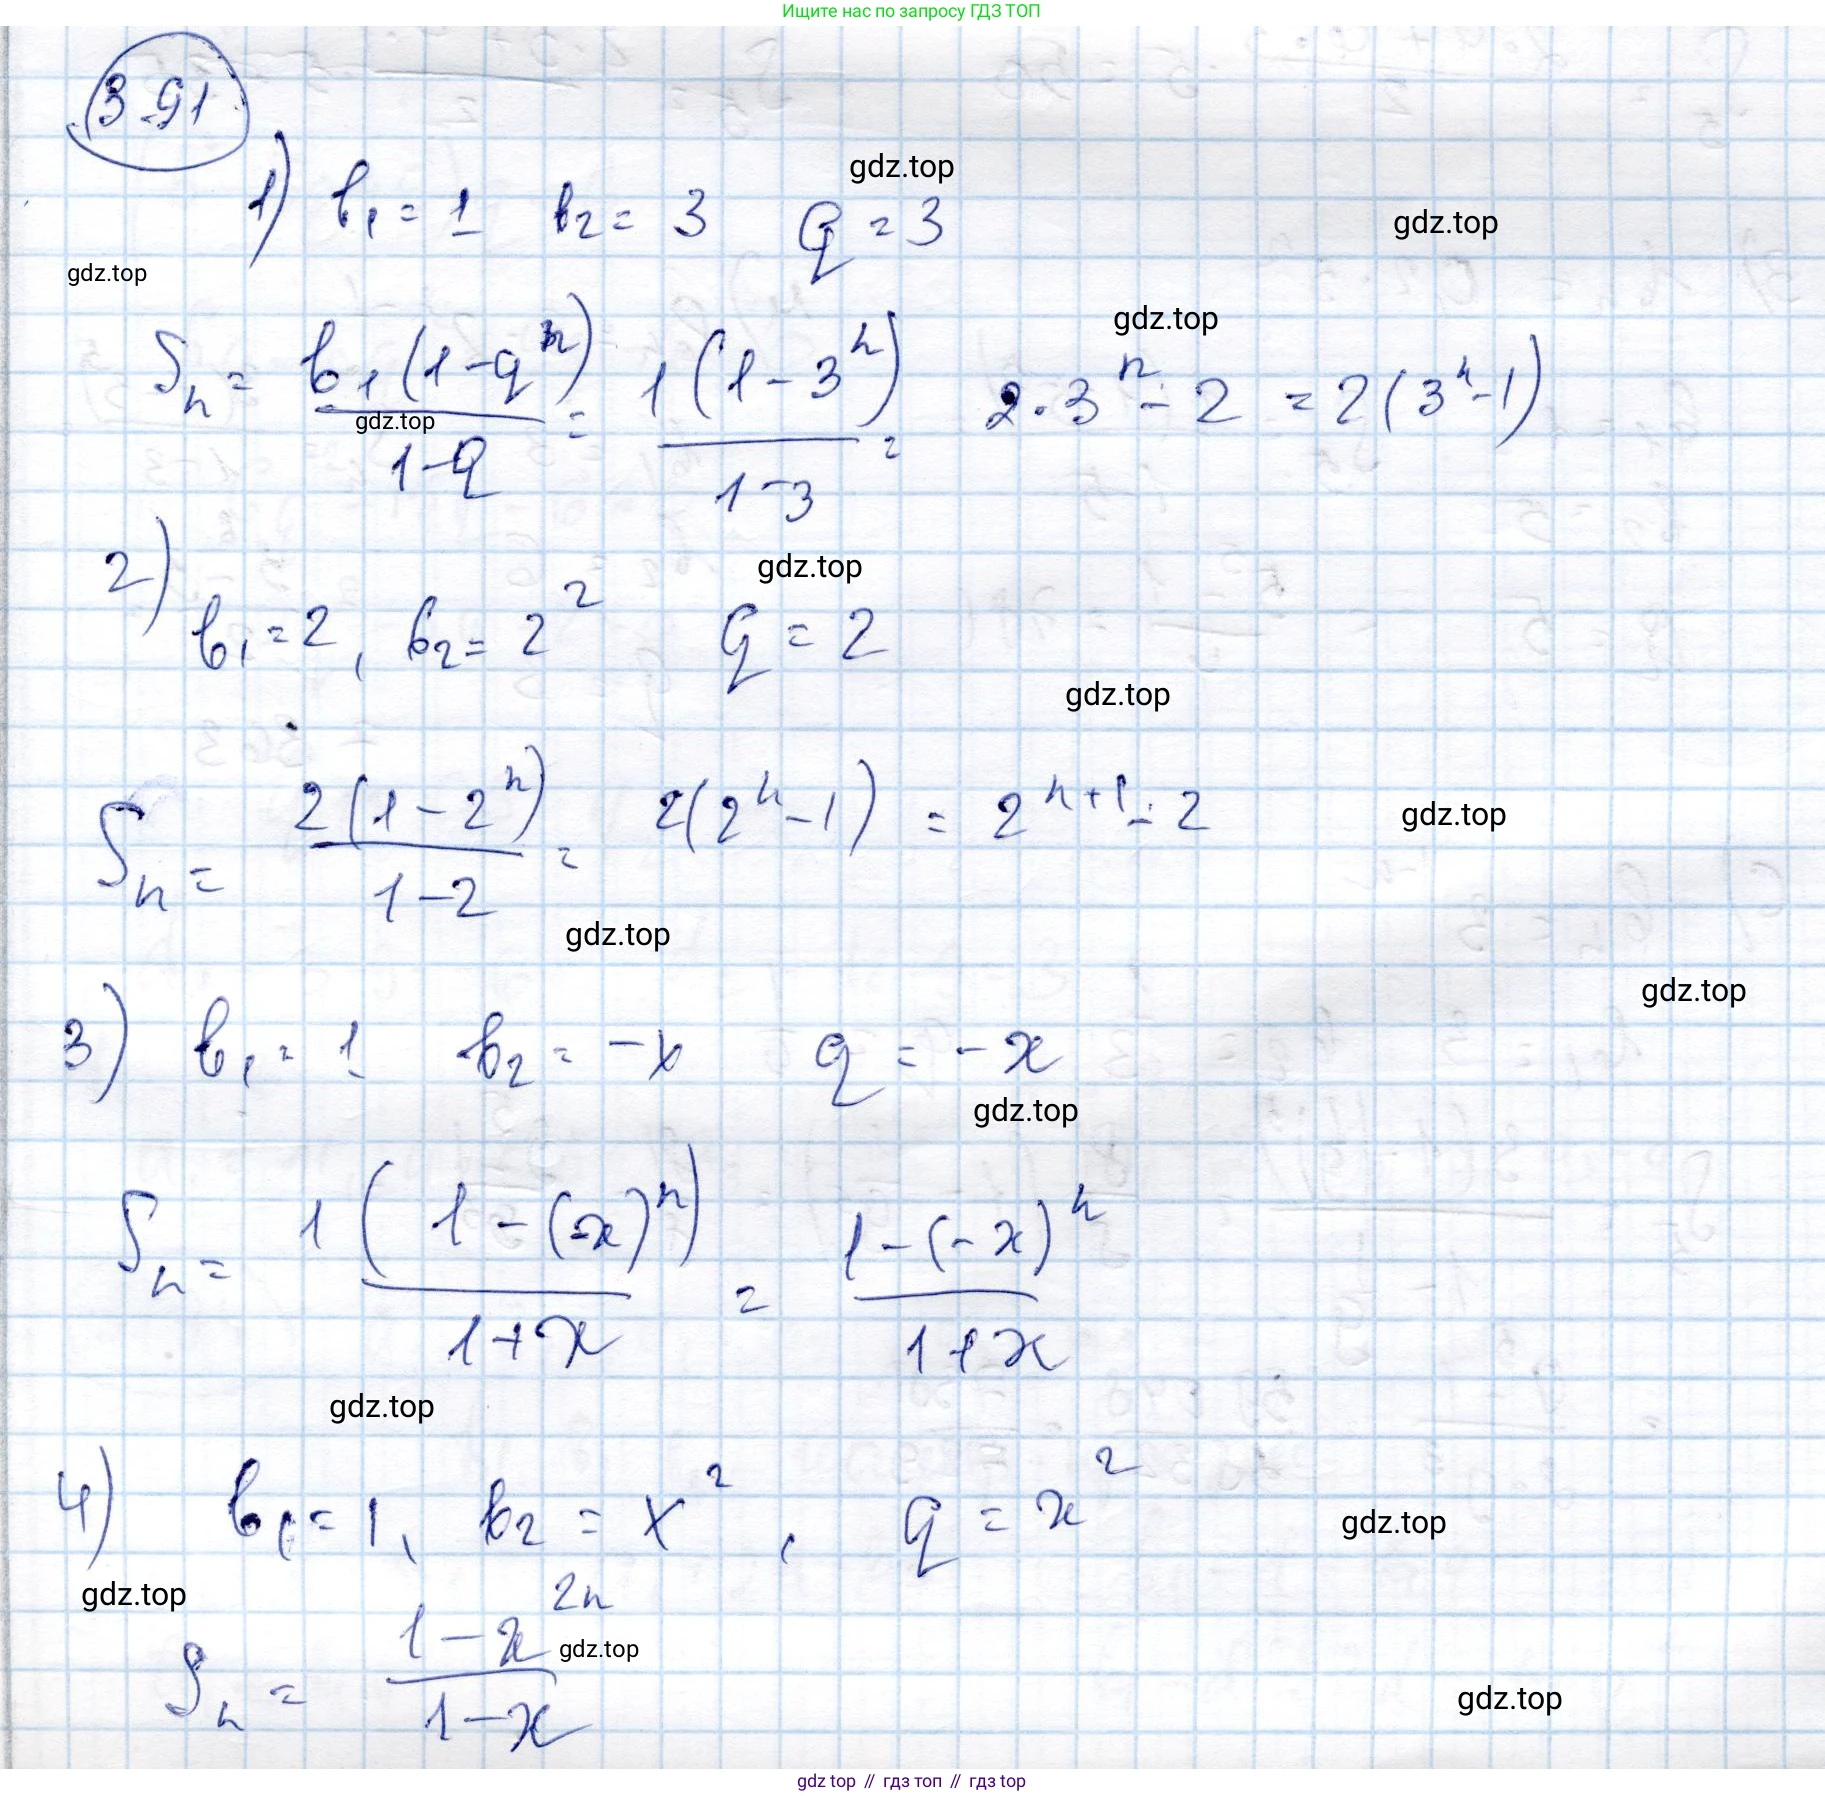 Ищите нас по запросу ГДЗ ТОП
391
1) b₁ = 1 b₂ = 3 q = 3
gdz.top
gdz.top
gdz.top
Sₙ = b₁(1-qⁿ)/(1-q) = 1(1-3ⁿ)/(1-3) = 2·3ⁿ - 2 = 2(3ⁿ-1)
gdz.top
gdz.top
2) b₁ = 2, b₂ = 2² q = 2
gdz.top
gdz.top
Sₙ = 2(1-2ⁿ)/(1-2) = 2(2ⁿ-1) = 2ⁿ⁺¹ - 2
gdz.top
gdz.top
gdz.top
3) b₁ = 1 b₂ = -x q = -x
gdz.top
Sₙ = 1(1-(-x)ⁿ)/(1+x) = (1-(-x)ⁿ)/(1+x)
gdz.top
4) b₁ = 1, b₂ = x², q = x²
gdz.top
gdz.top
Sₙ = (1-x²ⁿ)/(1-x)
gdz.top
gdz.top
gdz top // гдз топ // gdz top